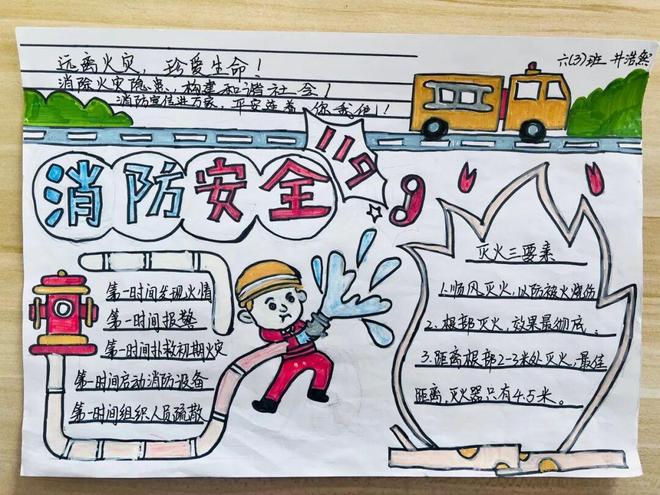 远离火灾,珍爱生命!
六(3)班 井浩然
消除火灾隐患,构建和谐社会!
消防宣传进万家,平安连着你我他!
119
消防安全
灭火三要素
第一时间发现火情
1.顺风灭火,以防被火烧伤
第一时间报警
2、根部灭火,效果最彻底。
第一时间扑救初期火灾
3.距离根部2-3米处灭火,最佳
第一时间启动消防设备
距离,灭火器只有4.5米。
第一时间组织人员疏散